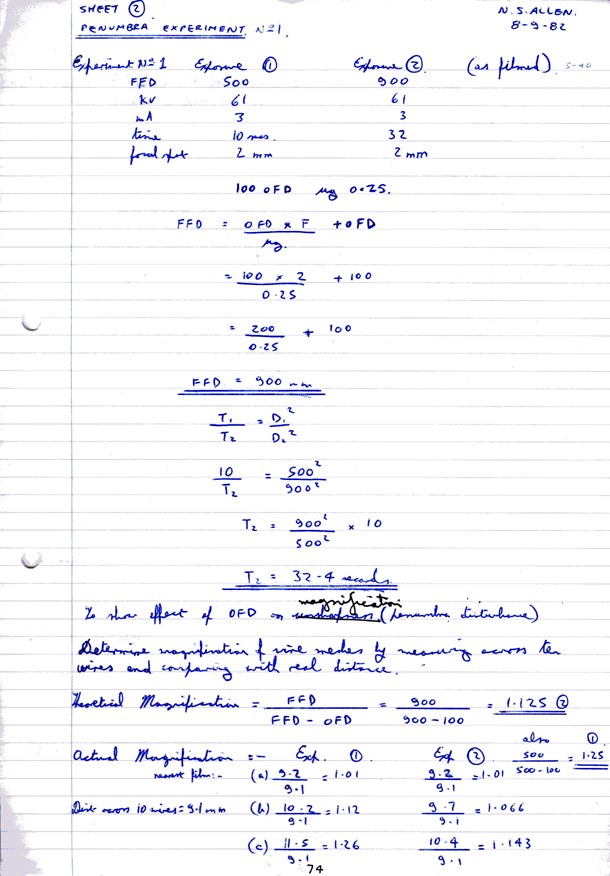 SHEET ②
N.S. ALLEN.
PENUMBRA EXPERIMENT. Nº1.
8-9-82
Experiment Nº 1 Exposure ① Exposure ② (as filmed). 5-40
FFD 500 900
KV 61 61
mA 3 3
time 10 secs. 32
focal spot 2 mm 2 mm
100 OFD µg 0.25.
FFD = OFD × F / µg. + OFD
= 100 × 2 / 0.25 + 100
= 200 / 0.25 + 100
FFD = 900 mm
T₁ / T₂ = D₁² / D₂²
10 / T₂ = 500² / 900²
T₂ = 900² / 500² × 10
T₂ = 32-4 seconds
magnification
To show effect of OFD on unsharpness (penumbra disturbance)
Determine magnification of wire meshes by measuring across ten
wires and comparing with real distance.
Theoretical Magnification = FFD / FFD - OFD = 900 / 900-100 = 1.125 ②
also ①
500 / 500-100 = 1.25
Actual Magnification =- Exp. ① Exp ②
nearest film:- (a) 9.2 / 9.1 = 1.01 9.2 / 9.1 = 1.01
Dist across 10 wires = 9.1 mm (b) 10.2 / 9.1 = 1.12 9.7 / 9.1 = 1.066
(c) 11.5 / 9.1 = 1.26 10.4 / 9.1 = 1.143
74